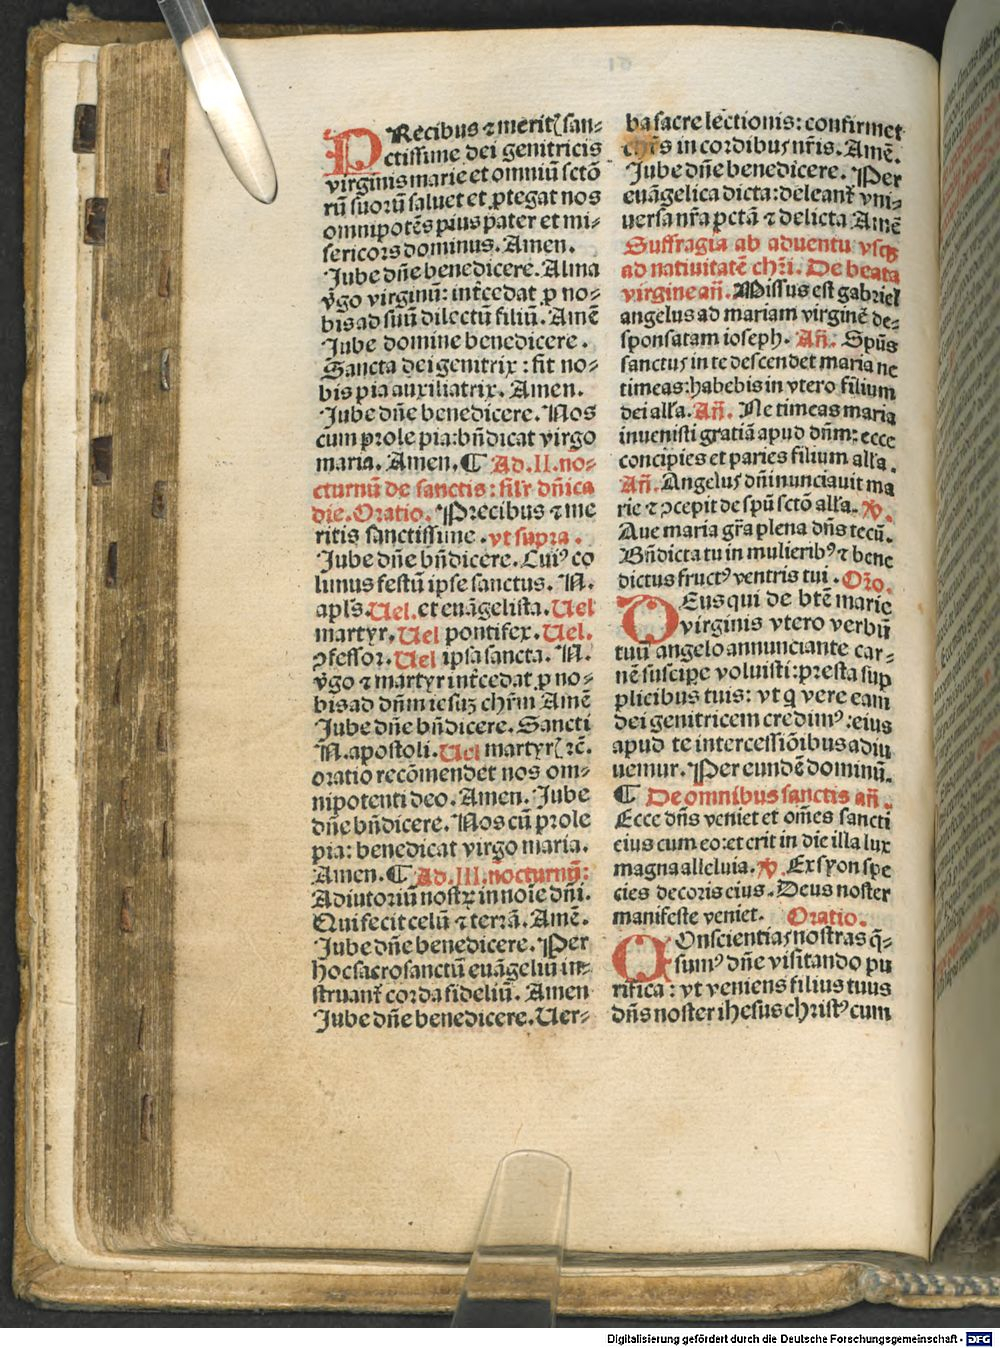 PRecibus ⁊ meritꝭ san⸗
ctissime dei genitricis
virginis marie et omniū sctō
rū suorū saluet et ꝓtegat nos
omnipotēs pius pater et mi⸗
sericors dominus. Amen.
Jube dn̄e benedicere. Alma
v̓go virginū: int̓cedat ꝑ no⸗
bis ad suū dilectū filiū. Amē
Jube domine benedicere.
Sancta dei genitrix: sit no⸗
bis pia auxiliatrix. Amen.
Jube dn̄e benedicere. Nos
cum prole pia: bn̄dicat virgo
maria. Amen. ¶ Ad .II. no⸗
cturnū de sanctis: silr̄ dn̄ica
die. Oratio. Precibus ⁊ me
ritis sanctissime. vt supra.
Jube dn̄e bn̄dicere. Cuiꝰ co
limus festū ipse sanctus. N.
apl̄s. Uel. et euāgelista. Uel
martyr. Uel pontifex. Uel.
ꝯfessor. Uel ipsa sancta. N.
v̓go ⁊ martyr int̓cedat ꝑ no⸗
bis ad dn̄m iesuꝫ chr̄m Amē
Jube dn̄e bn̄dicere. Sancti
N. apostoli. Uel martyrꝭ ⁊c̄.
oratio recōmendet nos om⸗
nipotenti deo. Amen. Jube
dn̄e bn̄dicere. Nos cū prole
pia: benedicat virgo maria.
Amen. ¶ Ad .III. nocturnū:
Adiutoriū nostꝝ in noīe dn̄i.
Qui fecit celū ⁊ terrā. Amē.
Jube dn̄e benedicere. Per
hoc sacrosanctū euāgeliū in⸗
struant̓ corda fideliū. Amen
Jube dn̄e benedicere. Uer⸗
ba sacre lectionis: confirmet
chr̄s in cordibus nr̄is. Amē.
Jube dn̄e benedicere. Per
euāgelica dicta: deleant̓ vni⸗
uersa nr̄a pctā ⁊ delicta Amē
Suffragia ab aduentu vsqꝫ
ad natiuitatē chr̄i. De beata
virgine an̄. Missus est gabriel
angelus ad mariam virginē de⸗
sponsatam ioseph. An̄. Spūs
sanctus in te descendet maria ne
timeas: habebis in vtero filium
dei all'a. An̄. Ne timeas maria
inuenisti gratiā apud dn̄m: ecce
concipies et paries filium all'a.
An̄. Angelus dn̄i nunciauit ma
rie ⁊ ꝯcepit de spū sctō all'a. ℣.
Aue maria gr̄a plena dn̄s tecū.
Bn̄dicta tu in mulieribꝰ ⁊ bene
dictus fructꝰ ventris tui. Orō.
DEus qui de btē marie
virginis vtero verbū
tuū angelo annunciante car⸗
nē suscipe voluisti: presta sup
plicibus tuis: vt q̄ vere eam
dei genitricem credimꝰ: eius
apud te intercessiōibus adiu
uemur. Per eundē dominū.
¶ De omnibus sanctis an̄.
Ecce dn̄s veniet et om̄es sancti
eius cum eo: et erit in die illa lux
magna alleluia. ℣. Ex syon spe
cies decoris eius. Deus noster
manifeste veniet. Oratio.
COnscientias nostras q̄⸗
sumꝰ dn̄e visitando pu
rifica: vt veniens filius tuus
dn̄s noster ihesus christꝰ cum
Digitalisierung gefördert durch die Deutsche Forschungsgemeinschaft - DFG